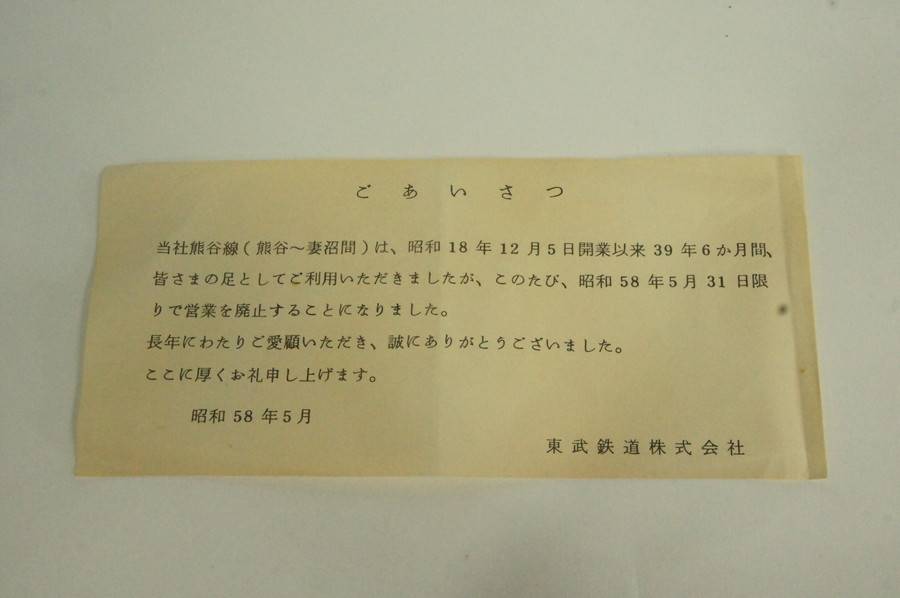 ごあいさつ
当社熊谷線(熊谷〜妻沼間)は、昭和18年12月5日開業以来39年6か月間、
皆さまの足としてご利用いただきましたが、このたび、昭和58年5月31日限
りで営業を廃止することになりました。
長年にわたりご愛顧いただき、誠にありがとうございました。
ここに厚くお礼申し上げます。
昭和58年5月
東武鉄道株式会社